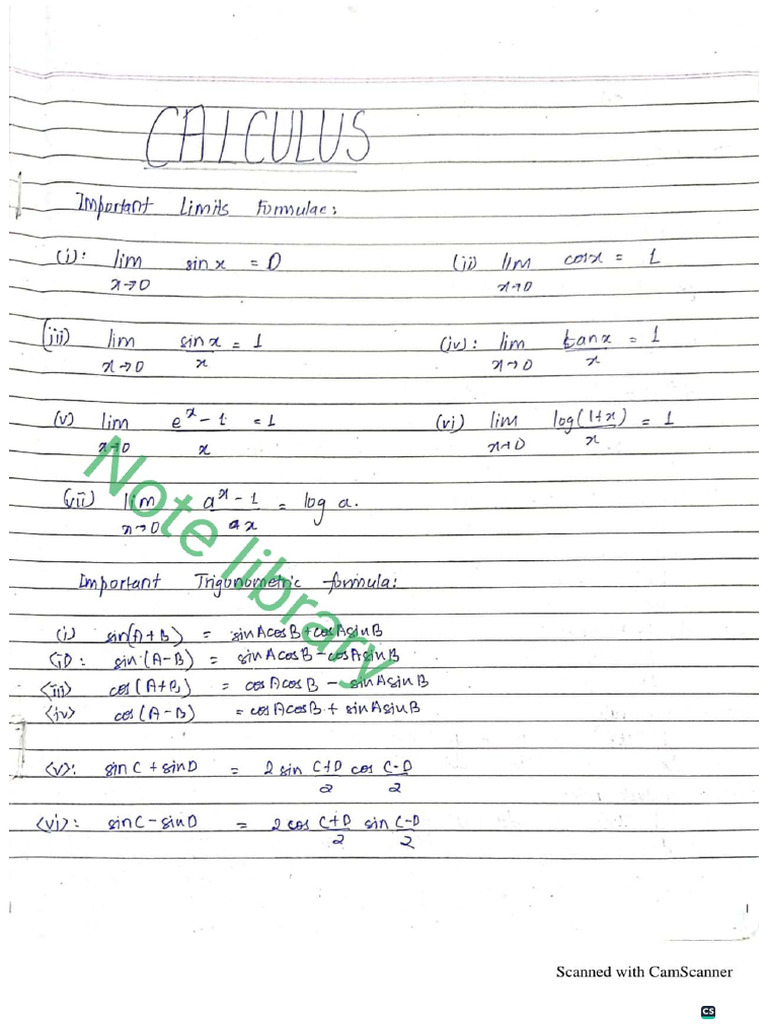 CALCULUS
Important Limits Formulae:
(i): lim x→0 sin x = 0 (ii) lim x→0 cos x = 1
(iii) lim x→0 sin x / x = 1 (iv): lim x→0 tan x / x = 1
(v) lim x→0 e^x - 1 / x = 1 (vi) lim x→0 log(1+x) / x = 1
(vii) lim x→0 a^x - 1 / ax = log a.
Important Trigonometric formula:
(i) sin(A+B) = sinAcosB+cosAsinB
(ii): sin(A-B) = sinAcosB-cosAsinB
(iii) cos(A+B) = cosAcosB - sinAsinB
(iv) cos(A-B) = cosAcosB + sinAsinB
(v): sinC + sinD = 2 sin C+D/2 cos C-D/2
(vi): sinC - sinD = 2 cos C+D/2 sin C-D/2
Note library
Scanned with CamScanner
CS